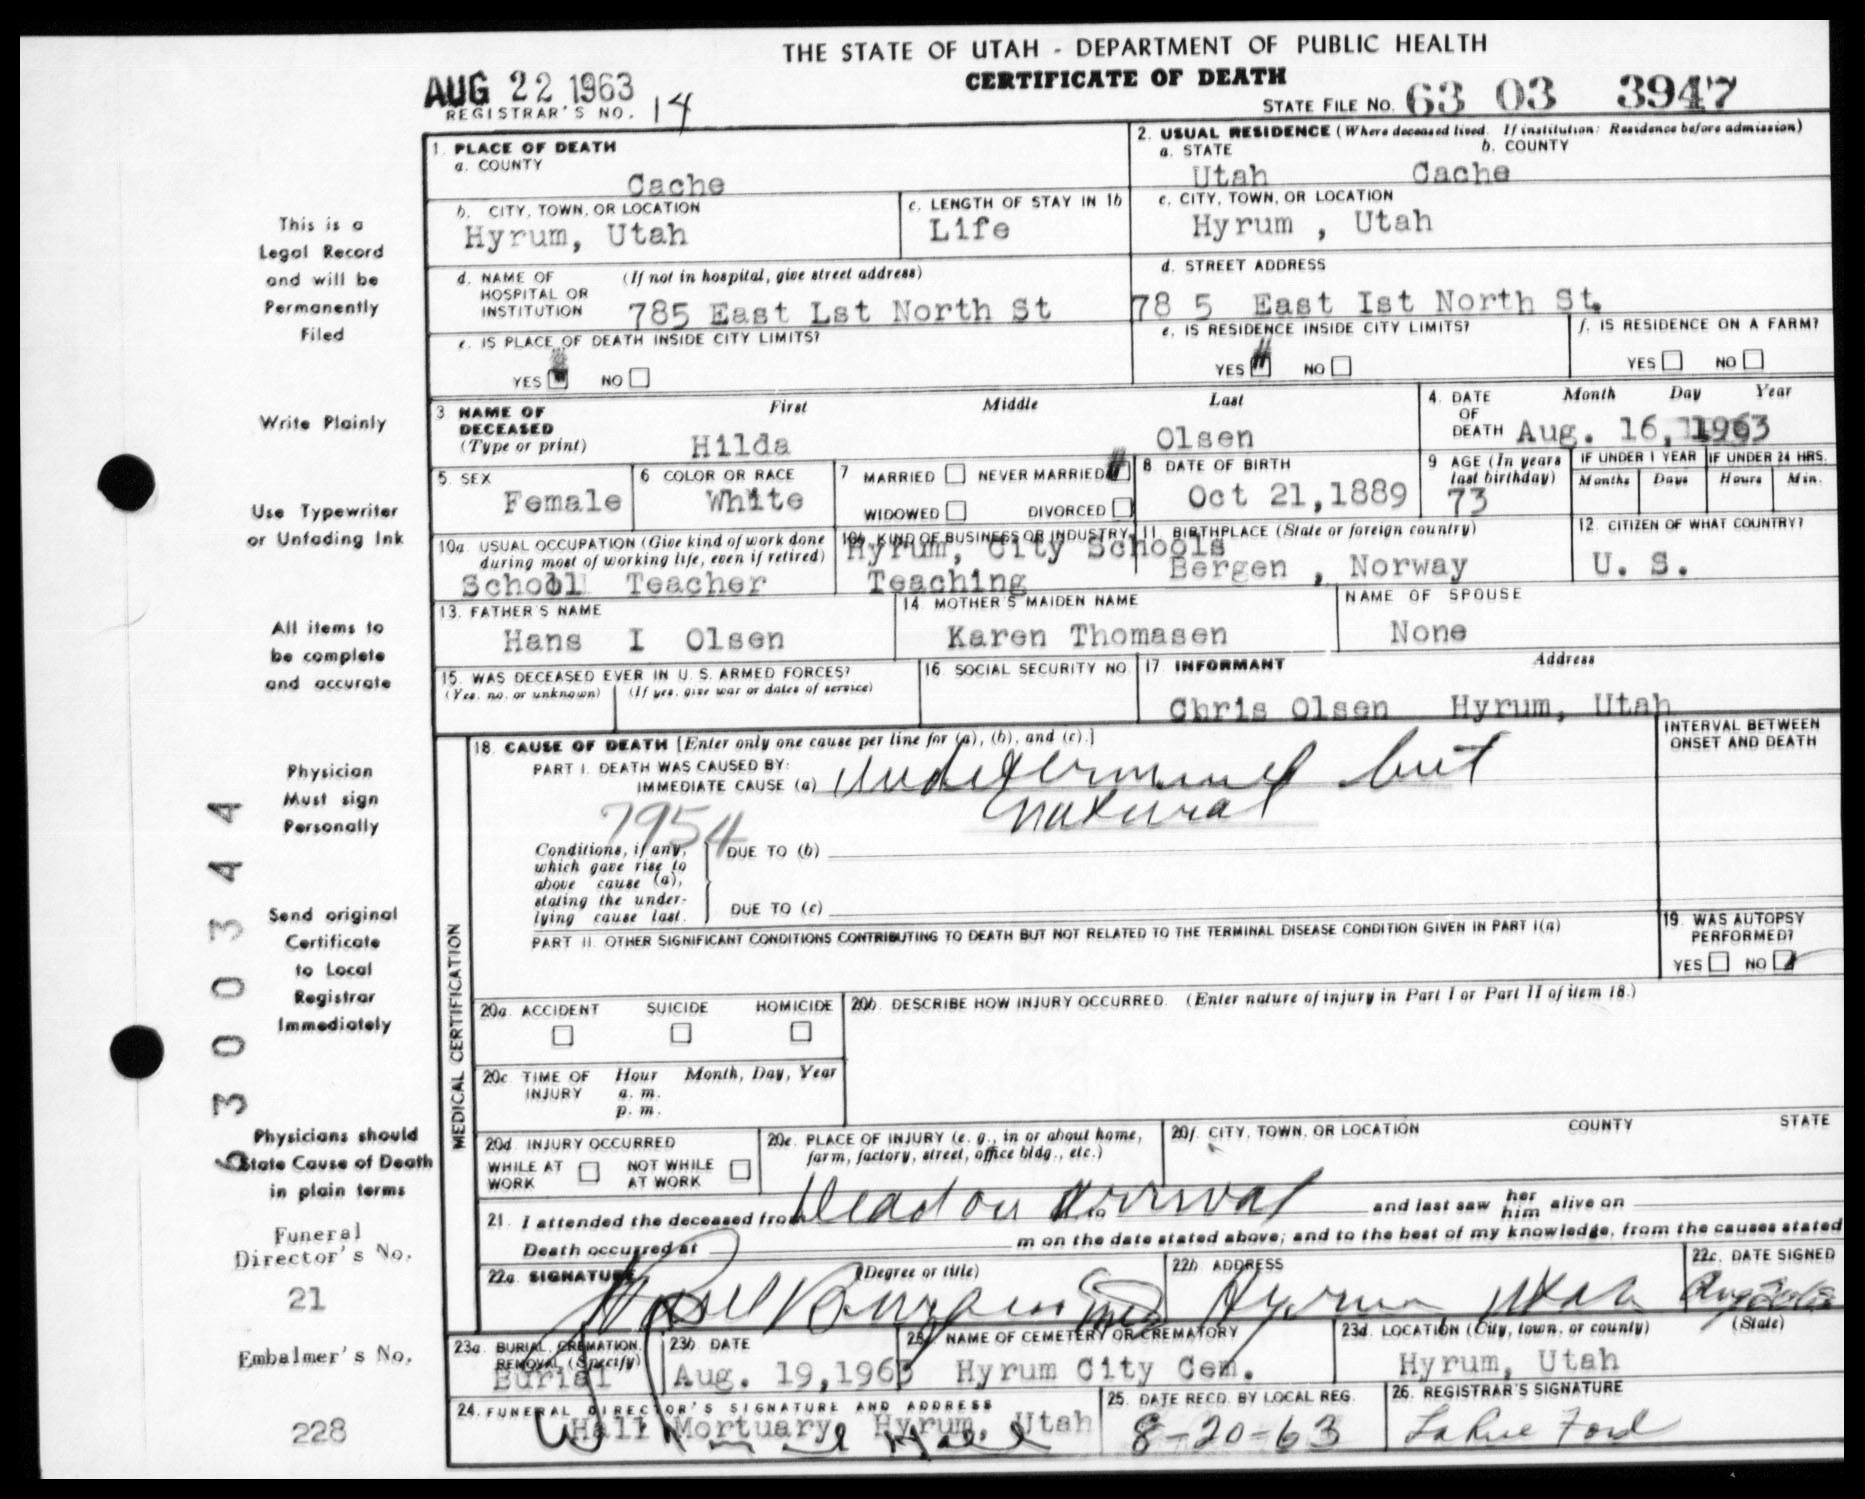 THE STATE OF UTAH - DEPARTMENT OF PUBLIC HEALTH
CERTIFICATE OF DEATH
AUG 22 1963
REGISTRAR'S NO. 14
STATE FILE NO. 63 03 3947
This is a
Legal Record
and will be
Permanently
Filed
Write Plainly
Use Typewriter
or Unfading Ink
All items to
be complete
and accurate
Physician
Must sign
Personally
Send original
Certificate
to Local
Registrar
Immediately
Physicians should
State Cause of Death
in plain terms
Funeral
Director's No.
21
Embalmer's No.
228
1. PLACE OF DEATH
a. COUNTY
Cache
b. CITY, TOWN, OR LOCATION
Hyrum, Utah
c. LENGTH OF STAY IN 1b
Life
d. NAME OF HOSPITAL OR INSTITUTION (If not in hospital, give street address)
785 East Lst North St
e. IS PLACE OF DEATH INSIDE CITY LIMITS?
YES NO
2. USUAL RESIDENCE (Where deceased lived. If institution: Residence before admission)
a. STATE b. COUNTY
Utah Cache
c. CITY, TOWN, OR LOCATION
Hyrum , Utah
d. STREET ADDRESS
78 5 East Ist North St.
e. IS RESIDENCE INSIDE CITY LIMITS?
YES NO
f. IS RESIDENCE ON A FARM?
YES NO
3 NAME OF DECEASED (Type or print) First Middle Last
Hilda Olsen
4. DATE OF DEATH Month Day Year
Aug. 16, 1963
5. SEX
Female
6 COLOR OR RACE
White
7 MARRIED NEVER MARRIED
WIDOWED DIVORCED
8 DATE OF BIRTH
Oct 21,1889
9 AGE (In years last birthday)
73
IF UNDER 1 YEAR IF UNDER 24 HRS.
Months Days Hours Min.
10a. USUAL OCCUPATION (Give kind of work done during most of working life, even if retired)
School Teacher
10b. KIND OF BUSINESS OR INDUSTRY
Hyrum, City Schools
Teaching
11. BIRTHPLACE (State or foreign country)
Bergen , Norway
12. CITIZEN OF WHAT COUNTRY?
U. S.
13. FATHER'S NAME
Hans I Olsen
14. MOTHER'S MAIDEN NAME
Karen Thomasen
NAME OF SPOUSE
None
15. WAS DECEASED EVER IN U. S. ARMED FORCES?
(Yes, no, or unknown) (If yes, give war or dates of service)
16. SOCIAL SECURITY NO.
17. INFORMANT Address
Chris Olsen Hyrum, Utah
MEDICAL CERTIFICATION
18. CAUSE OF DEATH [Enter only one cause per line for (a), (b), and (c).]
PART I. DEATH WAS CAUSED BY:
IMMEDIATE CAUSE (a) Undetermined but
natural
7954
INTERVAL BETWEEN ONSET AND DEATH
Conditions, if any,
which gave rise to
above cause (a),
stating the under-
lying cause last.
DUE TO (b)
DUE TO (c)
PART II. OTHER SIGNIFICANT CONDITIONS CONTRIBUTING TO DEATH BUT NOT RELATED TO THE TERMINAL DISEASE CONDITION GIVEN IN PART I(a)
19. WAS AUTOPSY PERFORMED?
YES NO
20a. ACCIDENT SUICIDE HOMICIDE
20b. DESCRIBE HOW INJURY OCCURRED. (Enter nature of injury in Part I or Part II of item 18.)
20c. TIME OF INJURY Hour Month, Day, Year
a. m.
p. m.
20d INJURY OCCURRED
WHILE AT WORK NOT WHILE AT WORK
20e. PLACE OF INJURY (e. g., in or about home, farm, factory, street, office bldg., etc.)
20f. CITY, TOWN, OR LOCATION COUNTY STATE
21. I attended the deceased from Dead on arrival to and last saw her him alive on
Death occurred at m on the date stated above; and to the best of my knowledge, from the causes stated
22a. SIGNATURE (Degree or title)
22b ADDRESS
Hyrum Utah
22c. DATE SIGNED
23a. BURIAL, CREMATION, REMOVAL (Specify)
Burial
23b. DATE
Aug. 19,1963
23c. NAME OF CEMETERY OR CREMATORY
Hyrum City Cem.
23d. LOCATION (City, town, or county) (State)
Hyrum, Utah
24. FUNERAL DIRECTOR'S SIGNATURE AND ADDRESS
Hall Mortuary, Hyrum, Utah
25. DATE RECD. BY LOCAL REG.
8-20-63
26. REGISTRAR'S SIGNATURE
LaRue Ford